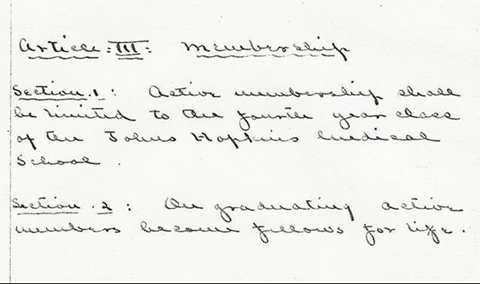 Article: III: Membership
Section.1: Active membership shall
be limited to the fourth year class
of the Johns Hopkins Medical
School.
Section.2: On graduating active
members become fellows for life.